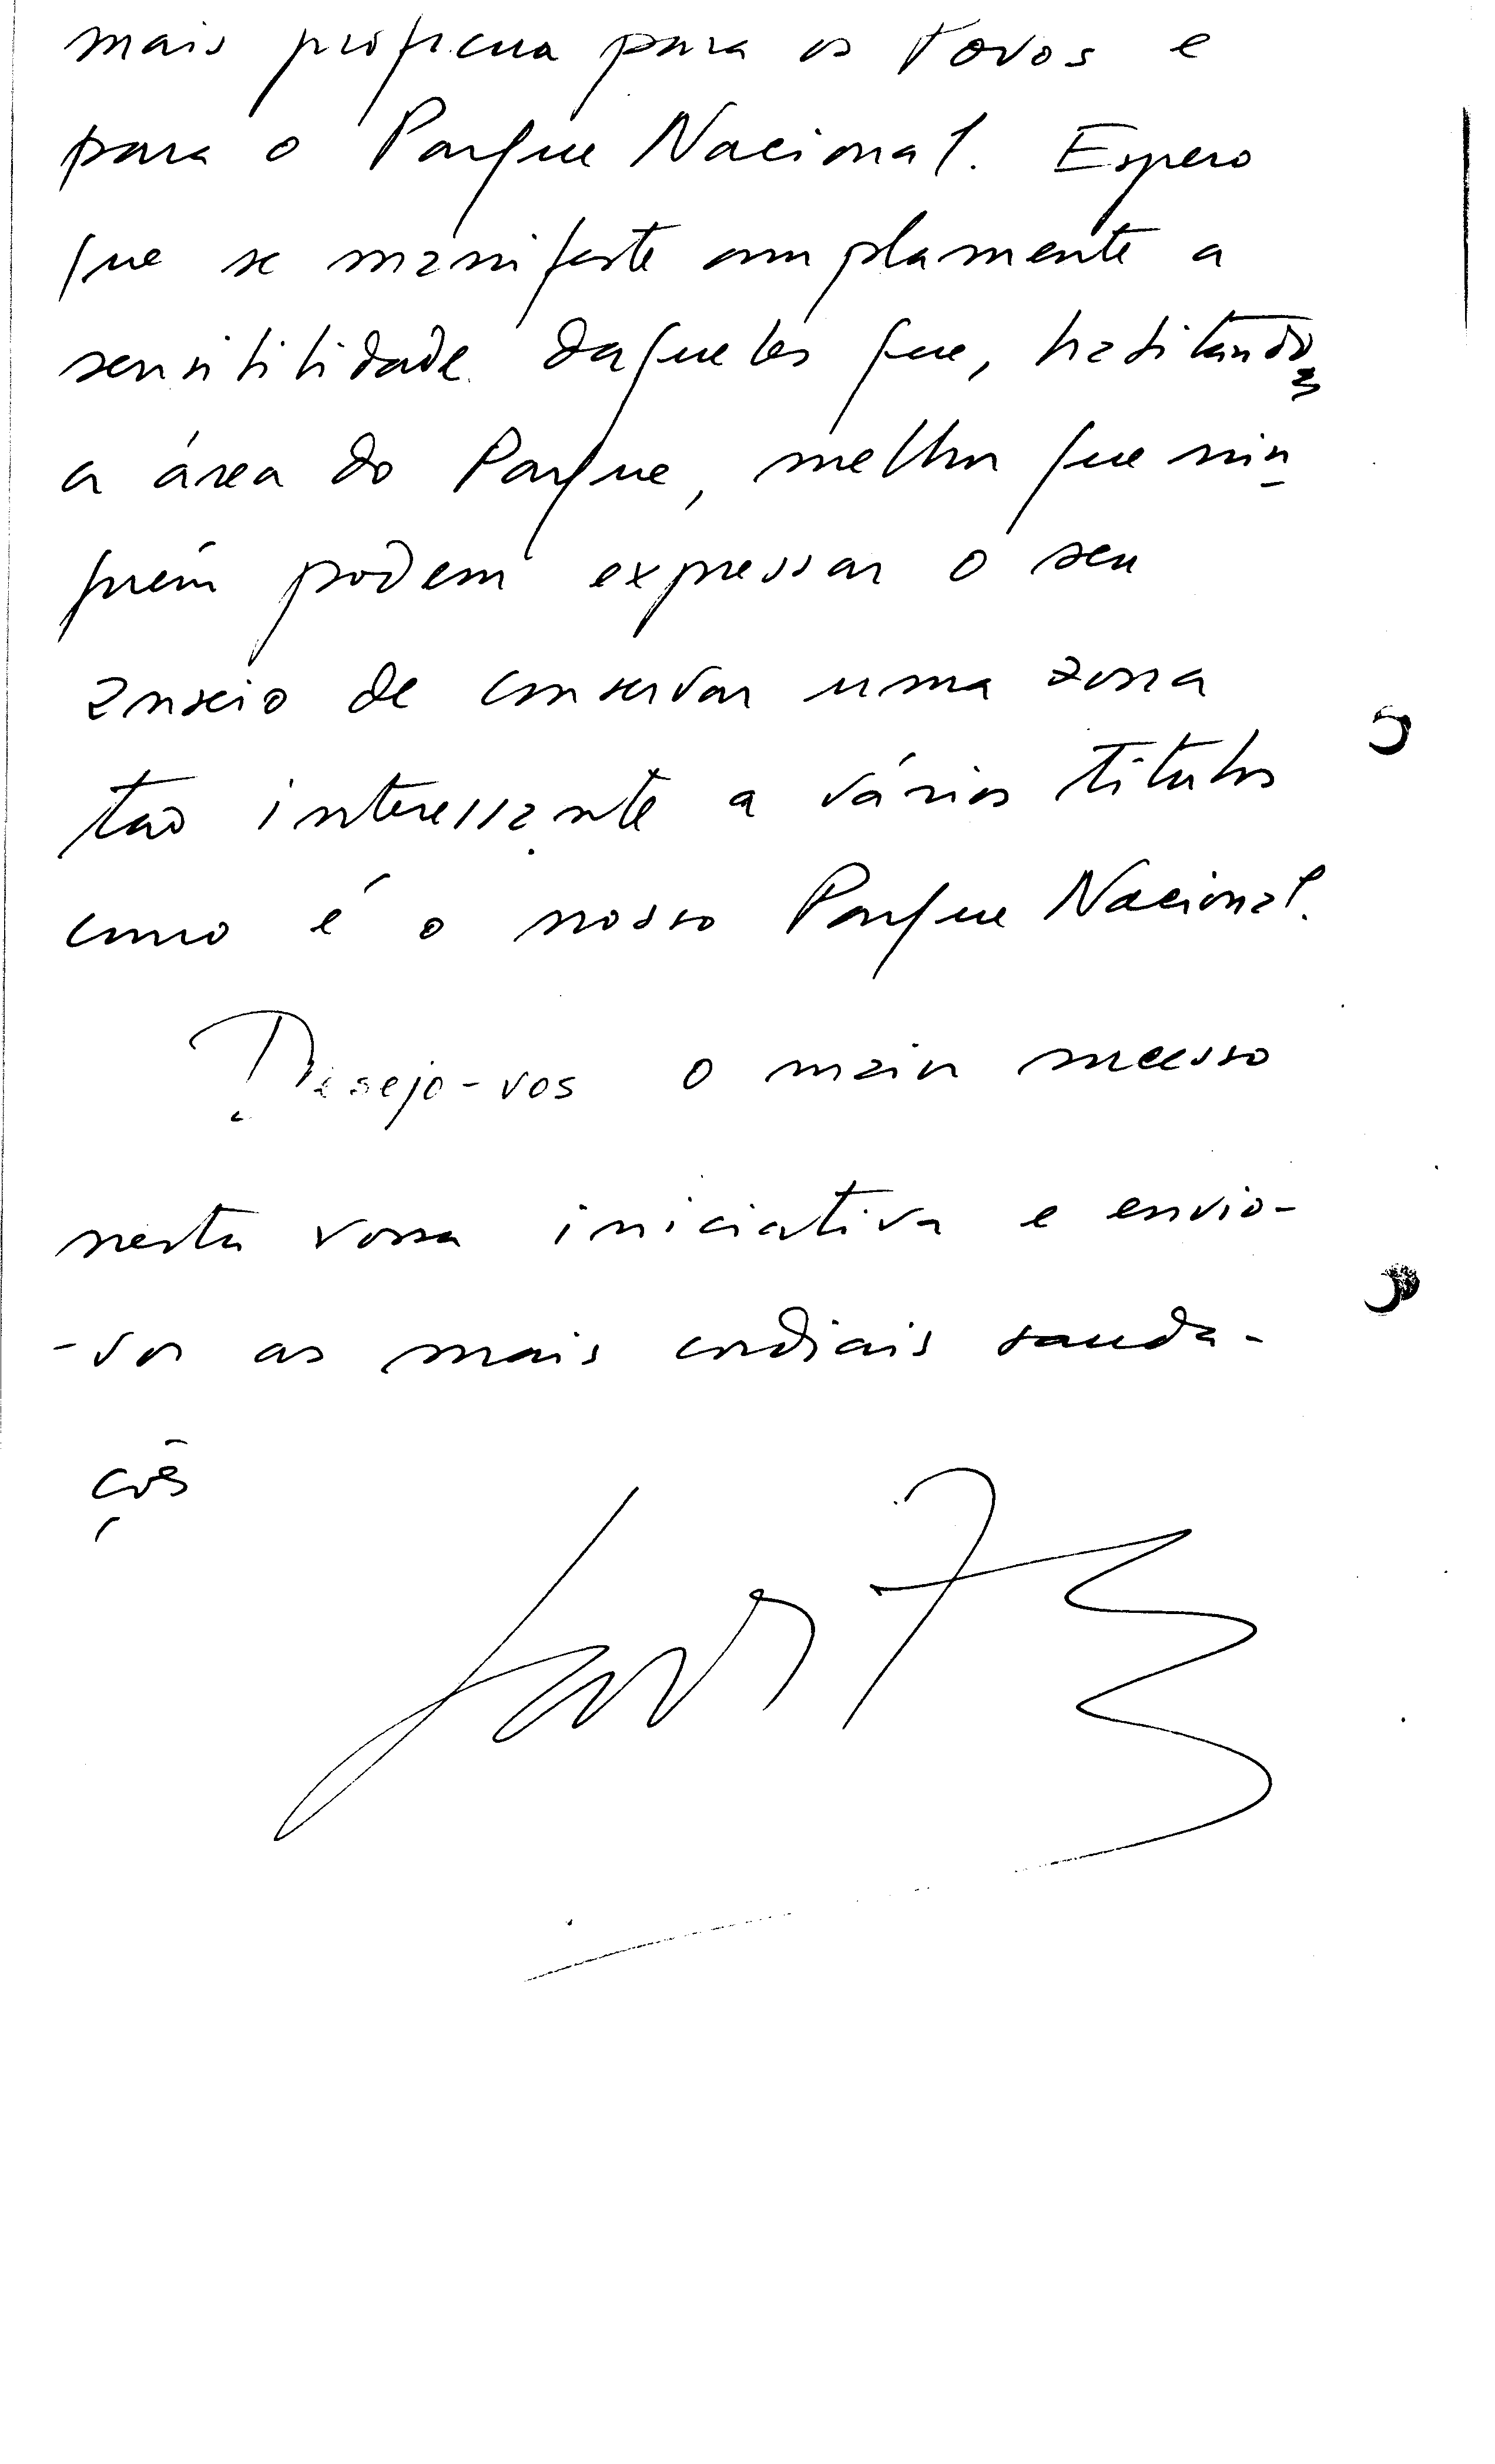 mais profícua para os Povos e
para o Parque Nacional. Espero
que se manifeste amplamente a
sensibilidade daqueles que, habitando
a área do Parque, melhor que nin
guém podem expressar o seu
anseio de conservar uma zona
tão interessante a vários títulos
como é o nosso Parque Nacional.
Desejo-vos o maior sucesso
nesta vossa iniciativa e envio-
-vos as mais cordiais sauda-
ções